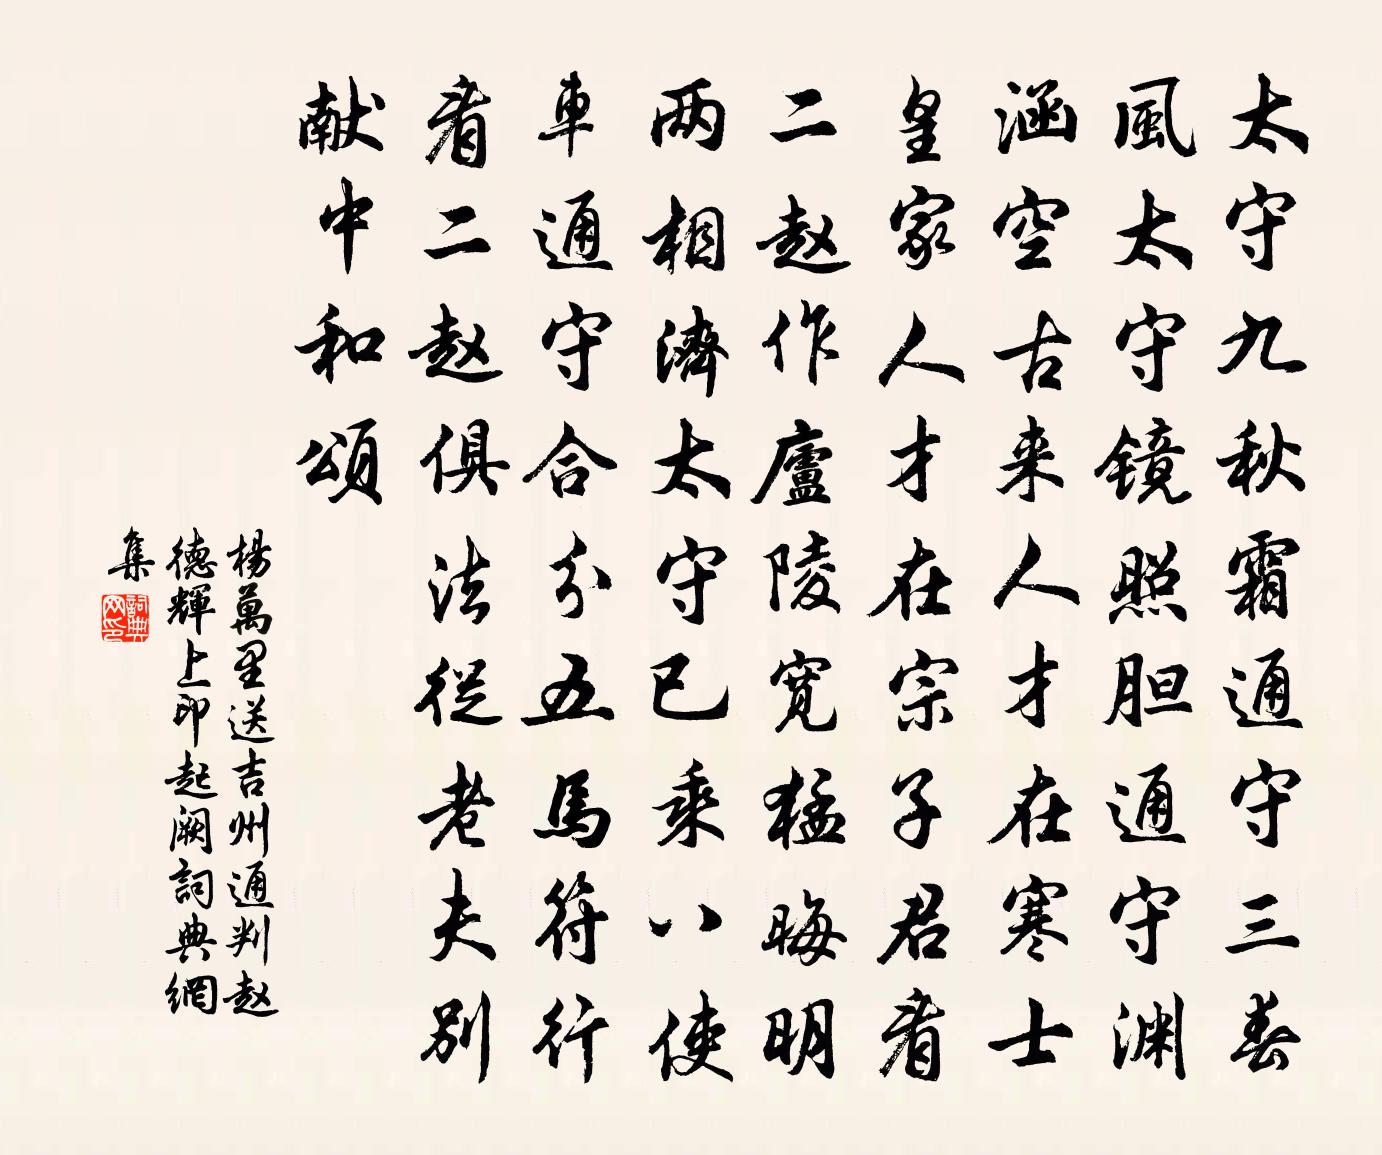 太守九秋霜通守三春
風太守镜照胆通守渊
涵空古来人才在寒士
皇家人才在宗子君看
二赵作廬陵宽猛晦明
两相濟太守已乘八使
車通守合分五馬符行
看二赵俱法從老夫别
献中和頌
楊萬里送吉州通判赵
德輝上印起阙詞典網
集
詞典
网印